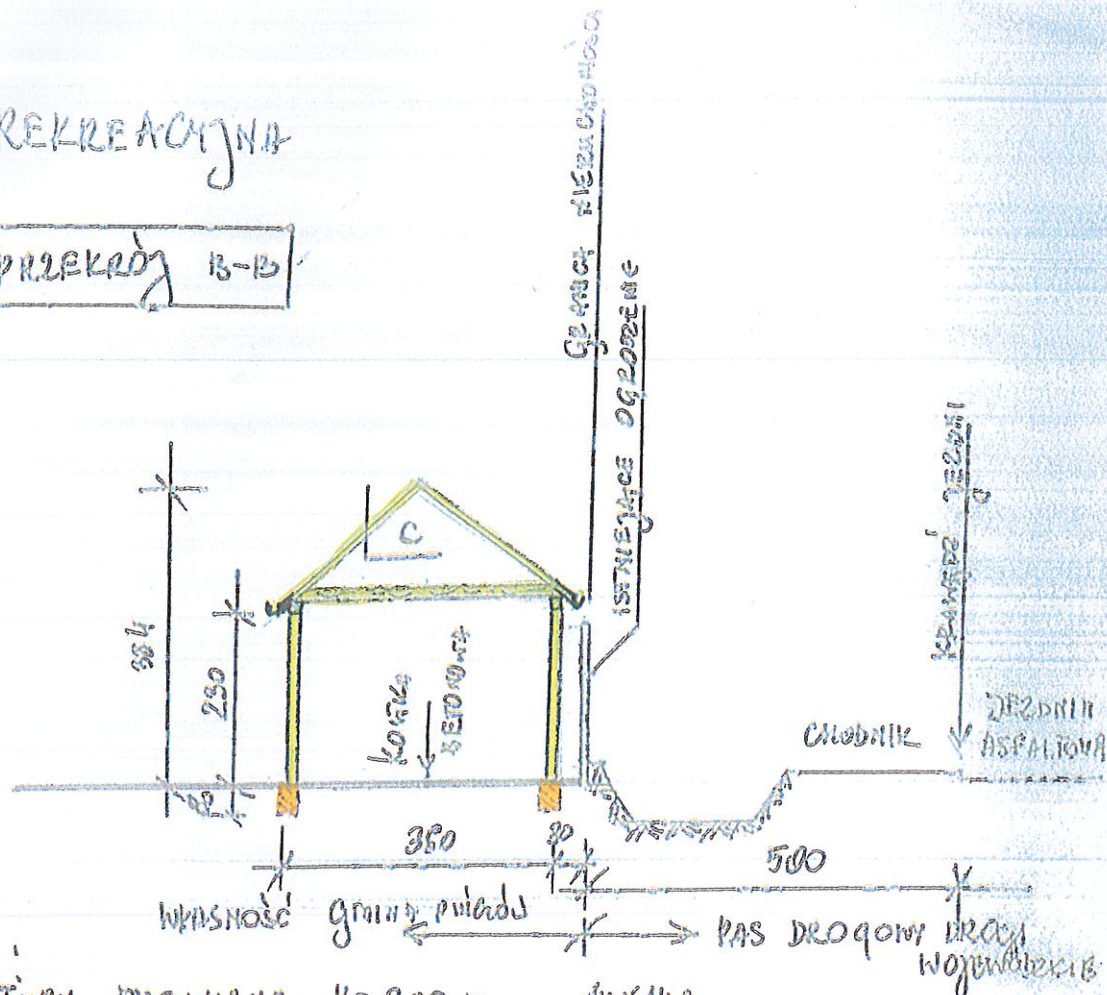 REKREACYJNA
PRZEKRÓJ B-B
GRANICA NIERUCHOMOŚCI
ISTNIEJĄCE OGRODZENIE
KRAWĘDŹ JEZDNI
C
384
230
KOSTKA
BETONOWA
CHODNIK
JEZDNIA
ASFALTOWA
360
30
500
WŁASNOŚĆ GMINA
PAS DROGOWY DROGI
WOJEWÓDZKIE